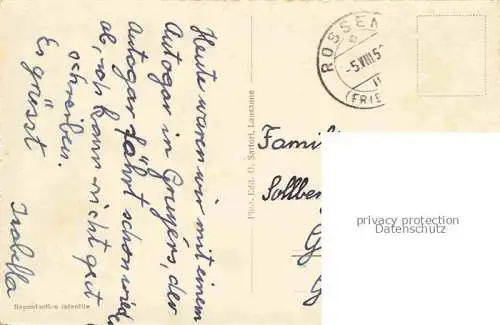 Heute waren wir mit einem
Autogar in Greyers, der
Autogar fährt schon wieder
ab, ich kann nicht gut
schreiben.
Es grüsst
Isabella
Reproduction interdite
Phot. Edit. O. Sartori, Lausanne
ROSSEN
-5.VIII.5
(FRIB
Famili
Sollber
G
G
privacy protection
Datenschutz